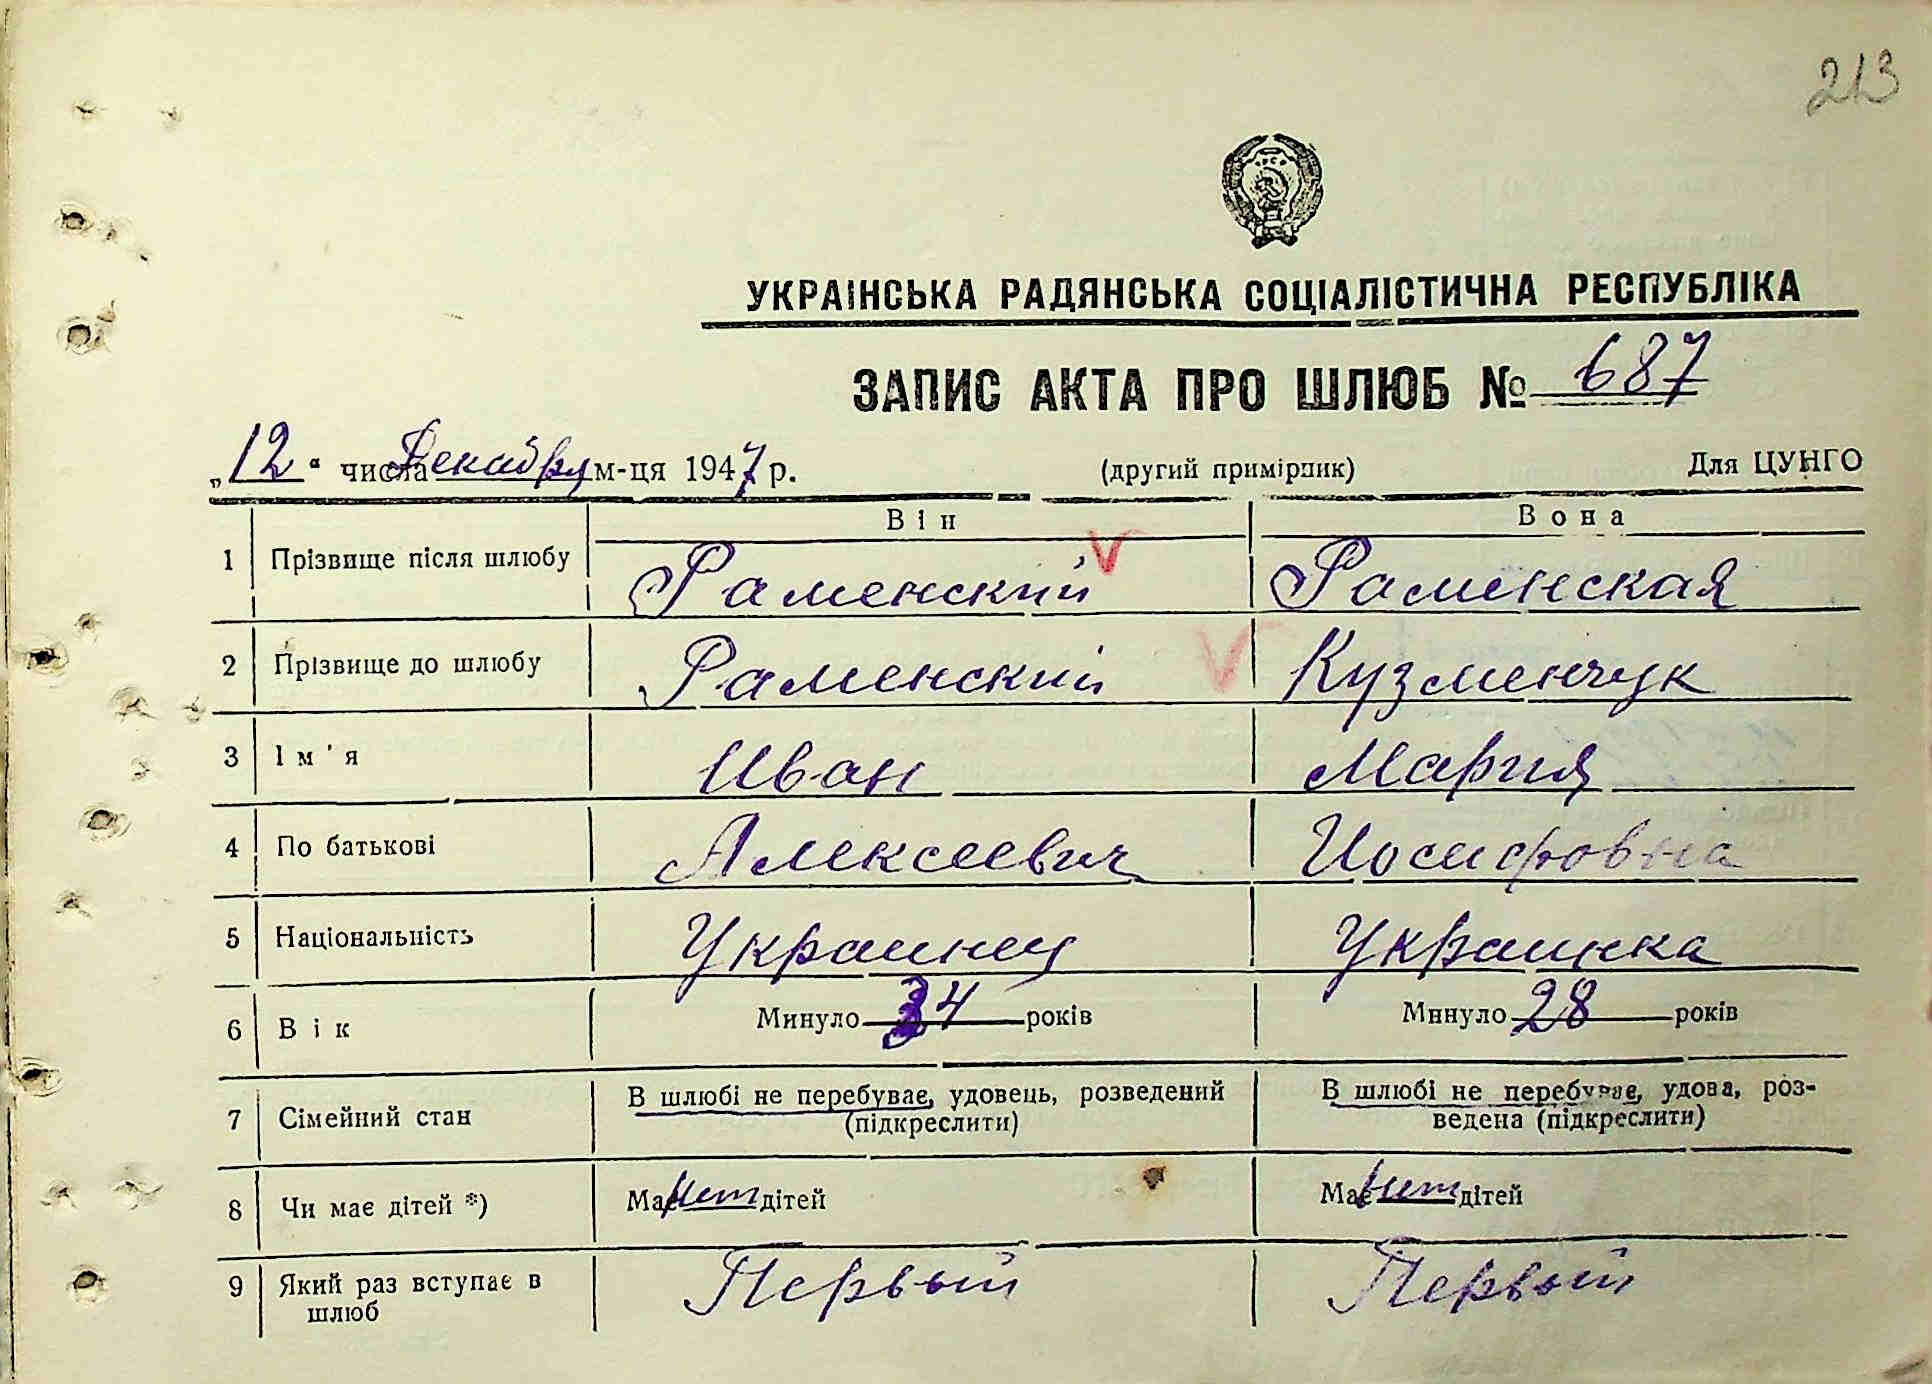 213
УКРАЇНСЬКА РАДЯНСЬКА СОЦІАЛІСТИЧНА РЕСПУБЛІКА
ЗАПИС АКТА ПРО ШЛЮБ № 687
„12“ числа Декабря м-ця 1947 р. (другий примірник) Для ЦУНГО
Він Вона
1 Прізвище після шлюбу Раменский Раменская
2 Прізвище до шлюбу Раменский Кузменчук
3 Ім'я Иван Мария
4 По батькові Алексеевич Иосифовна
5 Національність Украинец Украинка
6 Вік Минуло 34 років Минуло 28 років
7 Сімейний стан В шлюбі не перебуває, удовець, розведений (підкреслити) В шлюбі не перебуває, удова, роз-
ведена (підкреслити)
8 Чи має дітей *) Має нет дітей Має нет дітей
9 Який раз вступає в Первый Первый
шлюб